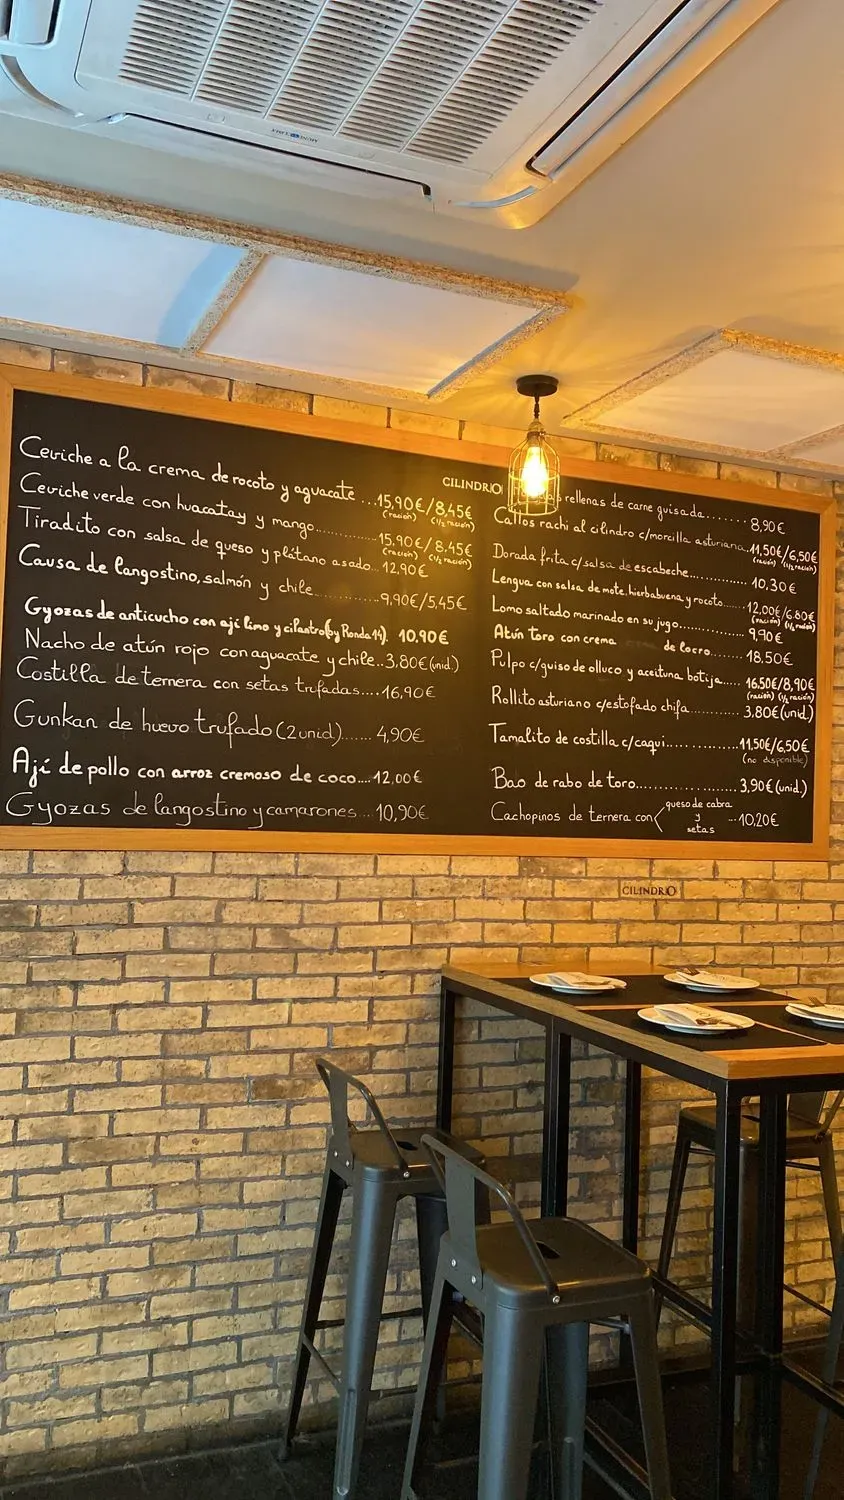 Ceviche a la crema de rocoto y aguacate ...15,90€/8,45€
(ración) (½ ración)
Ceviche verde con huacatay y mango.............15,90€/8,45€
(ración) (½ ración)
Tiradito con salsa de queso y plátano asado...12,90€
Causa de langostino, salmón y chile.............9,90€/5,45€
Gyozas de anticucho con ají limo y cilantro (by Ronda 14). 10,90€
Nacho de atún rojo con aguacate y chile..3,80€ (unid.)
Costilla de ternera con setas trufadas....16,90€
Gunkan de huevo trufado (2 unid)...... 4,90€
Ají de pollo con arroz cremoso de coco...12,00€
Gyozas de langostino y camarones...10,90€
CILINDRO
rellenas de carne guisada........8,90€
Callos rachi al cilindro c/morcilla asturiana..11,50€/6,50€
(ración) (½ ración)
Dorada frita c/salsa de escabeche............10,30€
Lengua con salsa de mote, hierbabuena y rocoto.....12,00€/6.80€
(ración) (½ ración)
Lomo saltado marinado en su jugo...............9,90€
Atún toro con crema de locro......18,50€
Pulpo c/guiso de olluco y aceituna botija.....16,50€/8,90€
(ración) (½ ración)
Rollito asturiano c/estofado chifa..........3,80€ (unid.)
Tamalito de costilla c/caqui.............11,50€/6,50€
(no disponible)
Bao de rabo de toro.....................3,90€ (unid.)
Cachopinos de ternera con queso de cabra y setas ...10,20€
CILINDRO